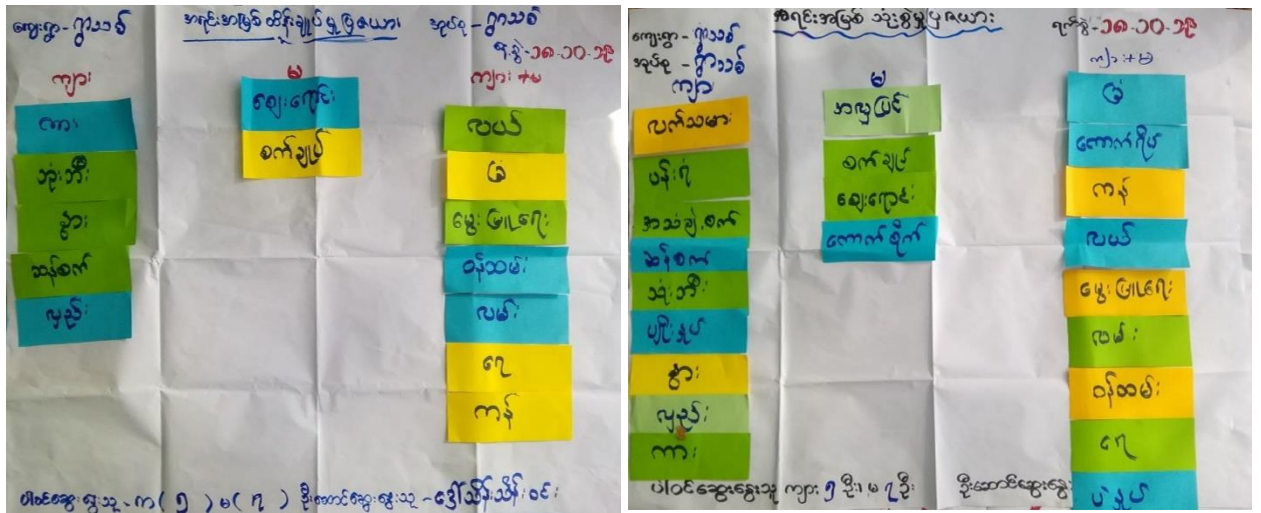 ကျေးရွာ - ရွာသစ်
အရင်းအမြစ် ထိန်းချုပ်မှုပြဇယား
အုပ်စု - ရွာသစ်
ရက်စွဲ - ၁၈.၁၀.၁၉
ကျား
ကား
သုံးဘီး
နွား
ဆန်စက်
လှည်း
မ
ဈေးရောင်း
စက်ချုပ်
ကျား + မ
လယ်
ခြံ
မွေးမြူရေး
ဝန်ထမ်း
လမ်း
ရေ
ကန်
ပါဝင်ဆွေးနွေးသူ - က ( ၅ ) မ ( ၇ ) ဦးဆောင်ဆွေးနွေးသူ - ဒေါ်သိန်းသိန်းဝင်း
အရင်းအမြစ် သုံးစွဲမှုပြဇယား
ကျေးရွာ - ရွာသစ်
အုပ်စု - ရွာသစ်
ရက်စွဲ - ၁၈.၁၀.၁၉
ကျား
လက်သမား
ပန်းရံ
ဆန်စက်
သုံးဘီး
နွား
လှည်း
ကား
မ
စက်ချုပ်
ဈေးရောင်း
ကောက်စိုက်
ကျား + မ
ခြံ
ကောက်ရိတ်
ကန်
လယ်
မွေးမြူရေး
လမ်း
ဝန်ထမ်း
ရေ
ပဲနှုတ်
ပါဝင်ဆွေးနွေးသူ ကျား ၅ ဦး၊ မ ၇ ဦး ဦးဆောင်ဆွေးနွေး